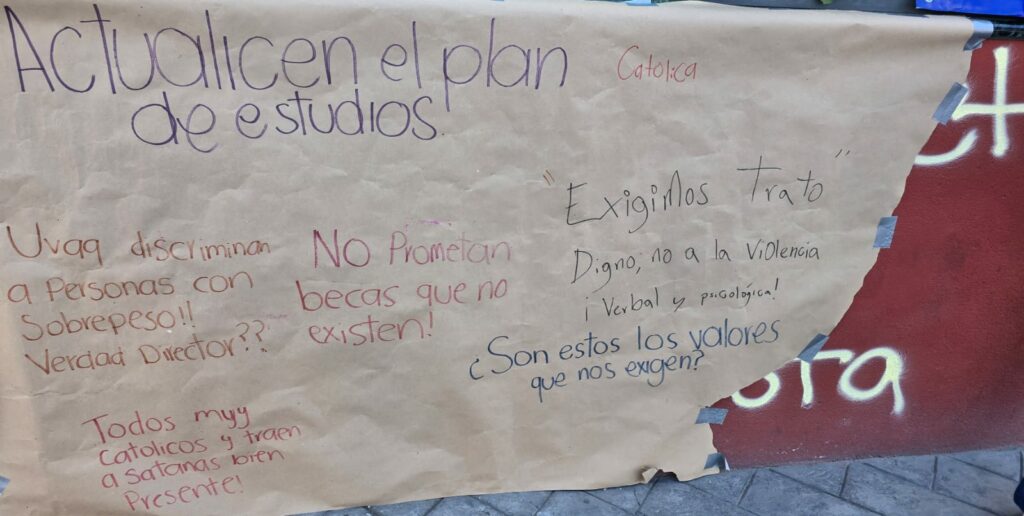 Actualicen el plan
de estudios.
Catolica
"Exigimos Trato"
Digno, no a la Violencia
¡Verbal y psicológica!
¿Son estos los valores
que nos exigen?
Uvaq discriminan
a Personas con
Sobrepeso!!
Verdad Director??
No Prometan
becas que no
existen!
Todos myy
catolicos y traen
a satanas bien
Presente!